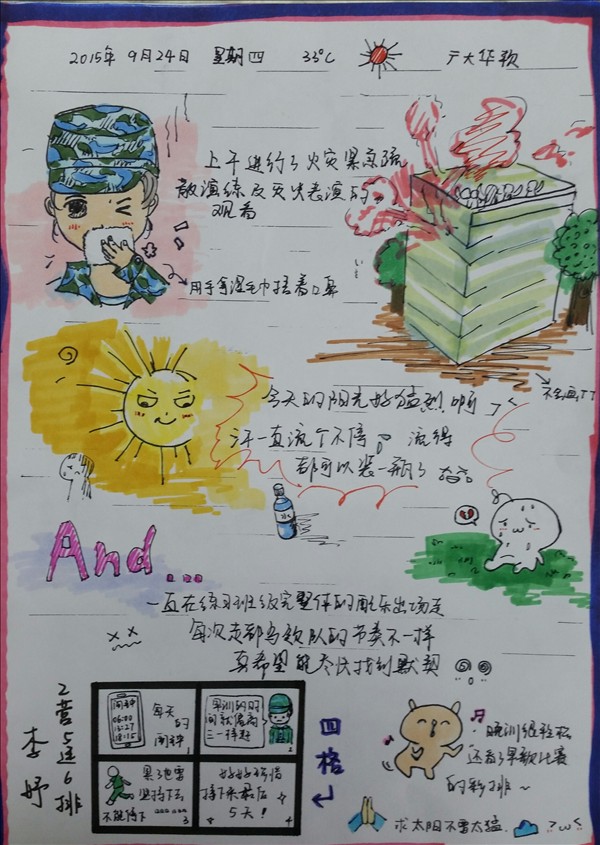 2015年 9月24日 星期四 33°C 广大华软
上午进行了火灾紧急疏
散演练及灭火表演的
观看
用手拿湿毛巾捂着口鼻
不会画TT
今天的阳光好猛烈啊
汗一直流个不停。流得
都可以装一瓶了
And...
一直在练习班级完整体的配乐出场走
每次走都与教队的节奏不一样
真希望能尽快找到默契
2营5连6排
李妤
闹钟
06:00
13:27
18:15
每天
的
闹钟
1
早训的时
间就像离
三一样赶
2
累了也要
坚持下去
不能停下
3
好好珍惜
接下来最后
5天!
4
四格
晚训很轻松
还看了早教比赛
的彩排~
求太阳不要太猛